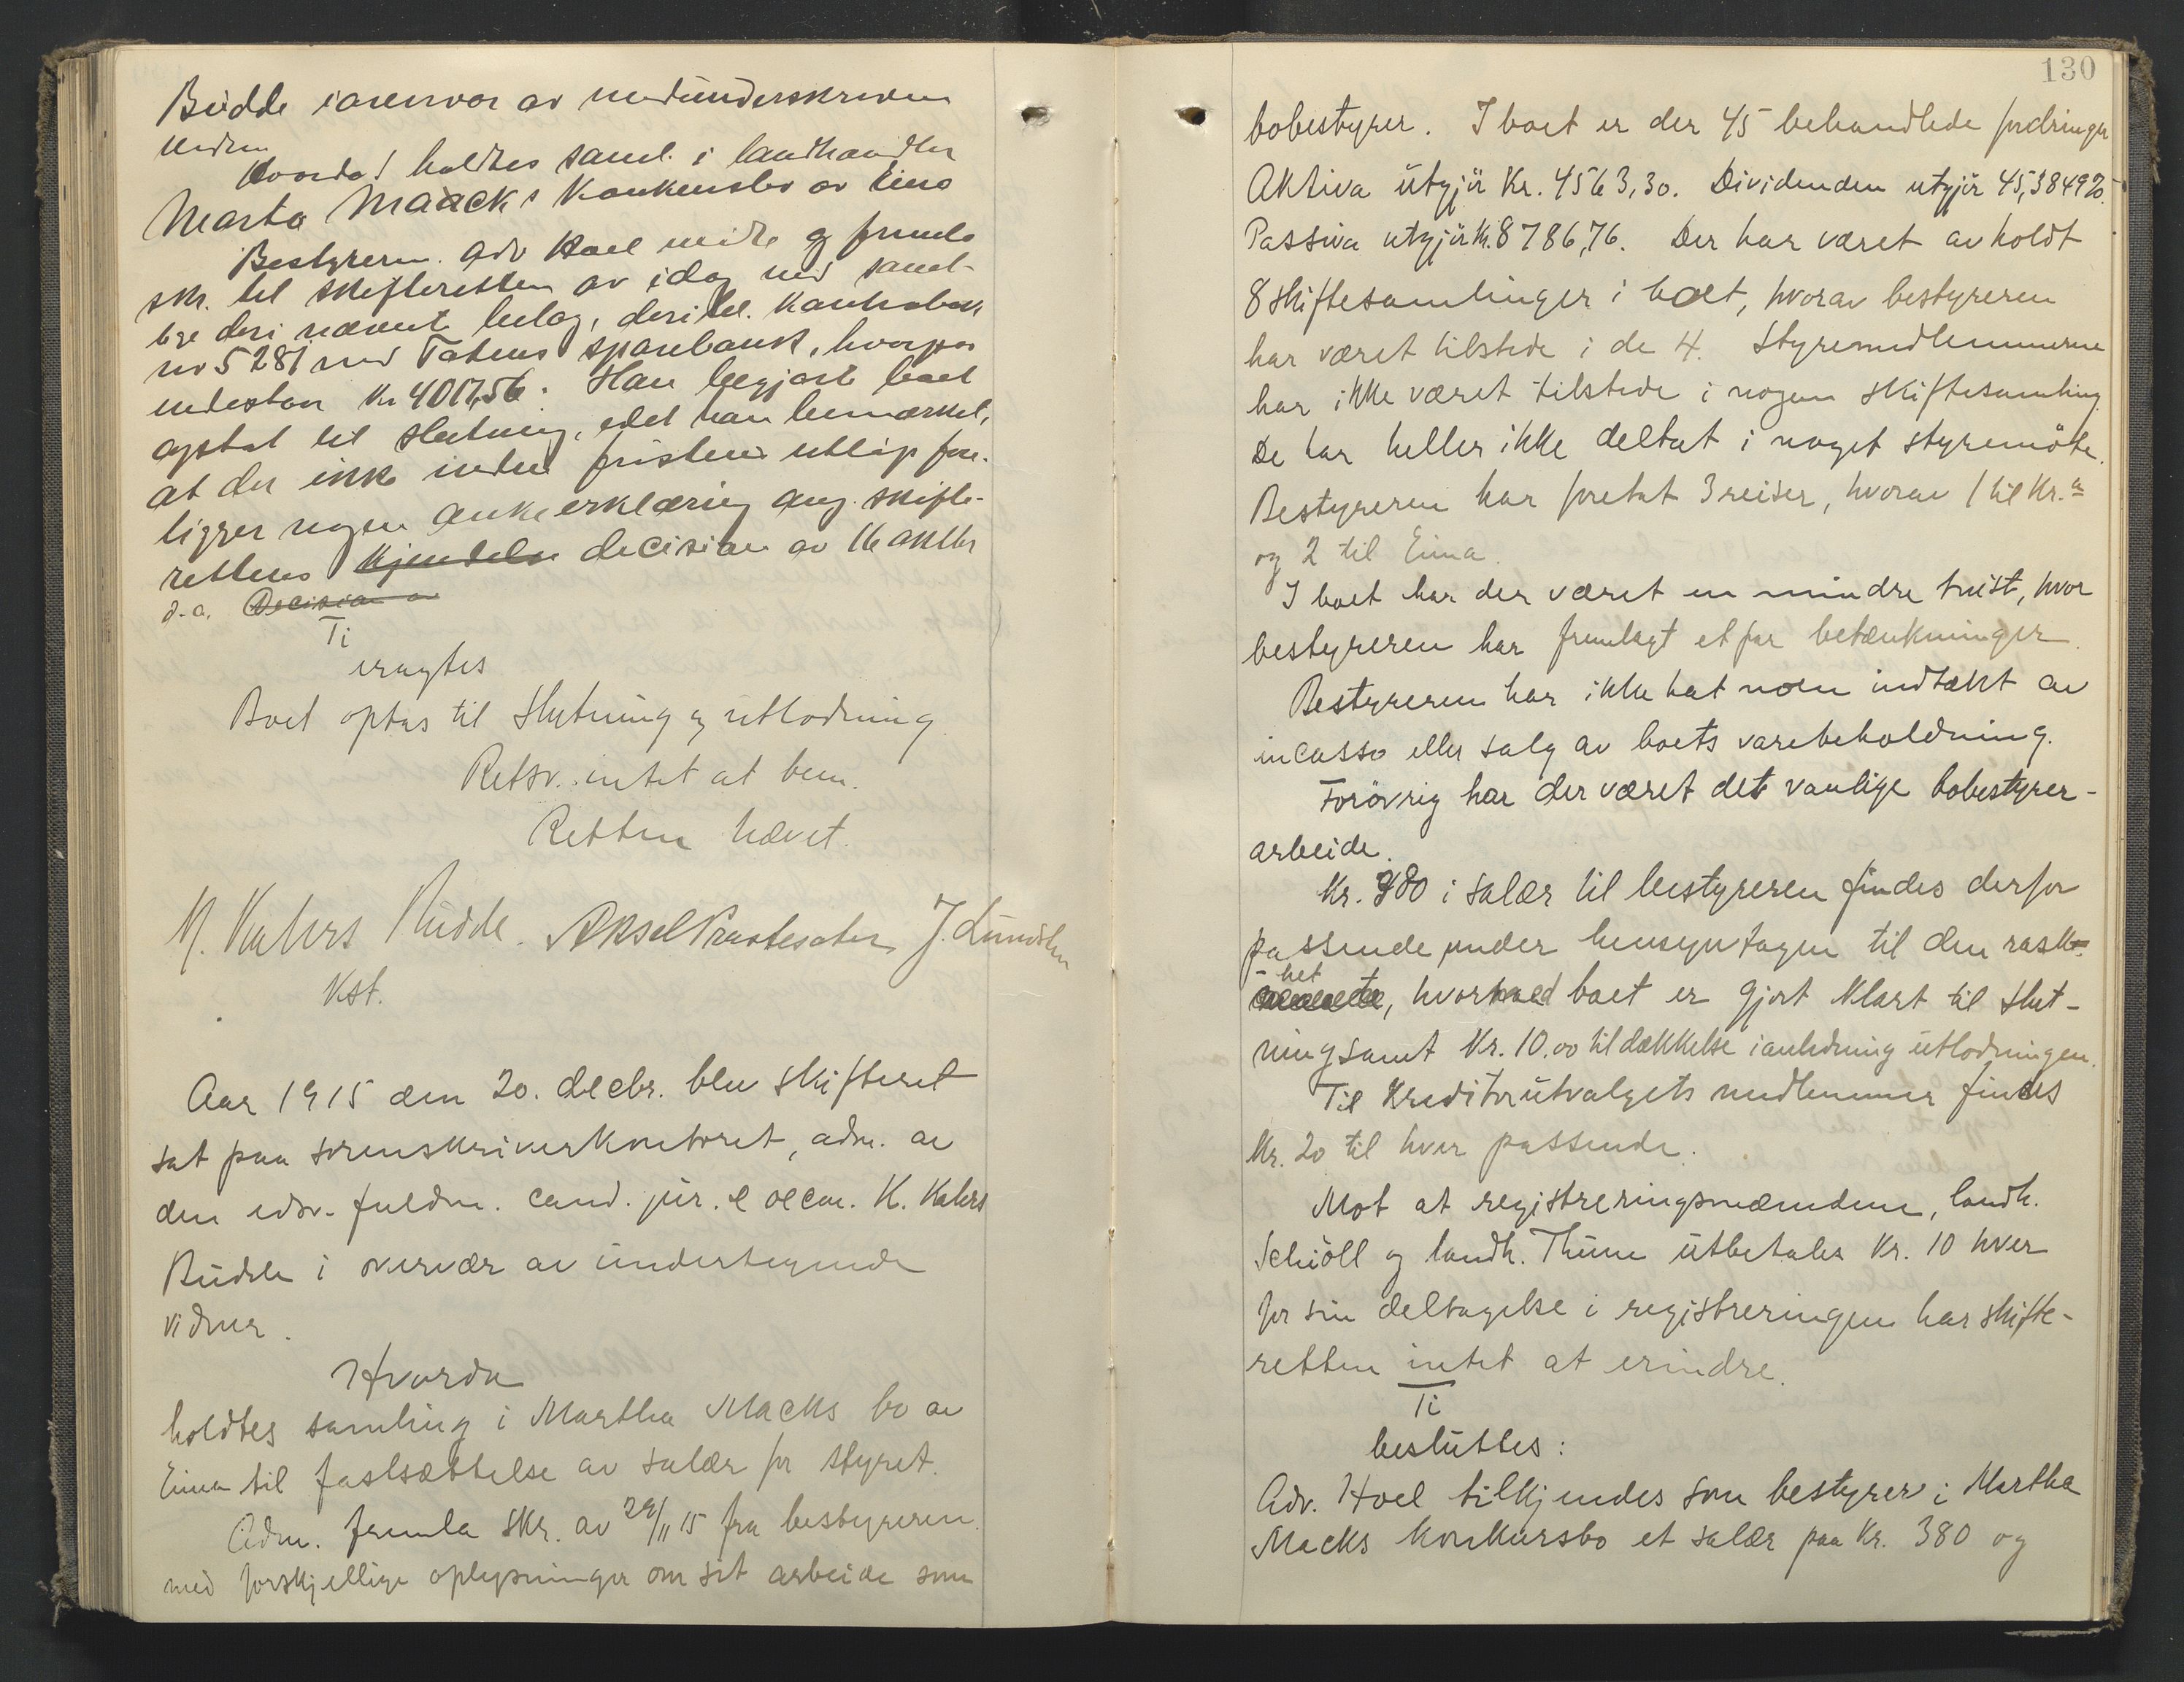 Budde i overvær av medunderskrevne
vidner
Hvorda! holdtes saml. i landhandler
Marta Maack's konkursbo av Eina
Bestyreren adv Hoel møtte og fremla
skr. til skifteretten av idag med samt-
lige deri nævnte bilag, deribl. kontrabok
nr 5281 med Totens sparebank, hvorpaa
indestaar kr 4017,56. Han begjærte boet
optat til slutning, idet han bemærket,
at der ikke inden fristens utløp fore-
ligger nogen ankeerklæring ang. skifte-
rettens kjendelse decision av 16 oktbr
d.a. Decision av
Ti
eragtes
Boet optas til slutning og utlodning.
Retsv. intet at bem.
Retten hævet.
K. Kahrs Budde. Aksel J. Lundsten
Kst.
Aar 1915 den 20. decbr. blev skifteret
sat paa sorenskriverkontoret, adm. av
den edsv. fuldm. cand. jur. & oecon. K. Kahrs
Budde i overvær av undertegnede
vidner.
Hvorda
holdtes samling i Martha Macks bo av
Eina til fastsættelse av salær for styret.
Adm. fremla skr. av 29/11 15 fra bestyreren
med forskjellige oplysninger om sit arbeide som
130
bobestyrer. I boet er der 45 behandlede fordringer
Aktiva utgjør Kr. 4563,30. Dividenden utgjør 45,3849%.
Passiva utgjør kr. 8786,76. Der har været avholdt
8 skiftesamlinger i boet, hvorav bestyreren
har været tilstede i de 4. Styremedlemmerne
har ikke været tilstede i nogen skiftesamling.
De har heller ikke deltat i noget styremøte.
Bestyreren har foretat 3 reiser, hvorav 1 til Kr.a
og 2 til Eina.
I boet har der været en mindre tvist, hvor
bestyreren har fremlagt et par betænkninger.
Bestyreren har ikke hat noen indtækt av
incasso eller salg av boets varebeholdning.
Forøvrig har der været det vanlige bobestyrer-
arbeide.
Kr. 380 i salær til bestyreren findes derfor
passende under hensyntagen til den rask-
-het
, hvormed boet er gjort klart til slut-
ning samt Kr. 10.00 til dækkelse i anledning utlodningen.
Til Kreditorutvalgets medlemmer findes
Kr. 20 til hver passende.
Mot at registreringsmændene, landh.
Schiøll og landh. Thune utbetales Kr. 10 hver
for sin deltagelse i registreringen har skifte-
retten intet at erindre.
Ti
besluttes:
Adv. Hoel tilkjendes som bestyrer i Martha
Macks konkursbo et salær paa Kr. 380 og